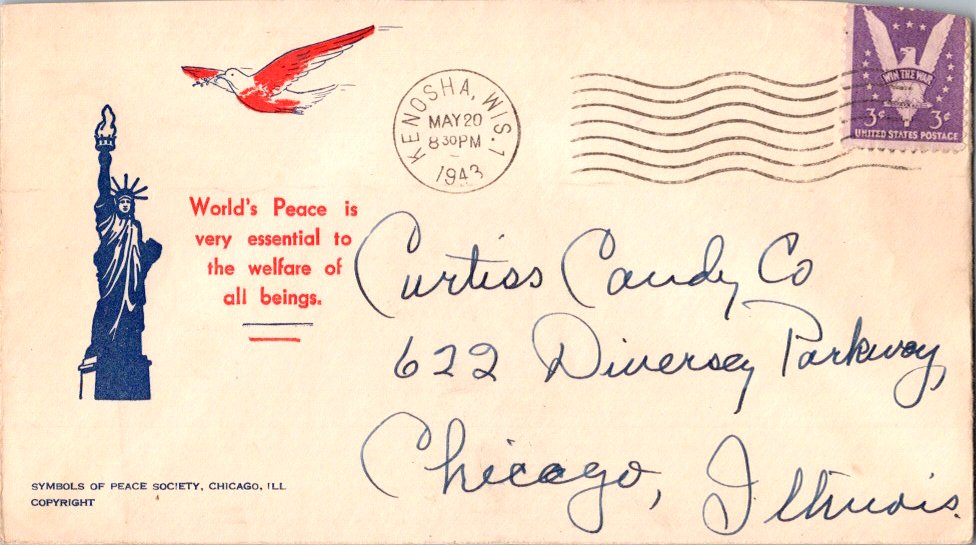 KENOSHA, WIS. 1
MAY 20
8 30 PM
1943
WIN THE WAR
3¢ 3¢
UNITED STATES POSTAGE
World's Peace is
very essential to
the welfare of
all beings.
Curtiss Candy Co
622 Diversey Parkway,
Chicago, Illinois.
SYMBOLS OF PEACE SOCIETY, CHICAGO, ILL
COPYRIGHT